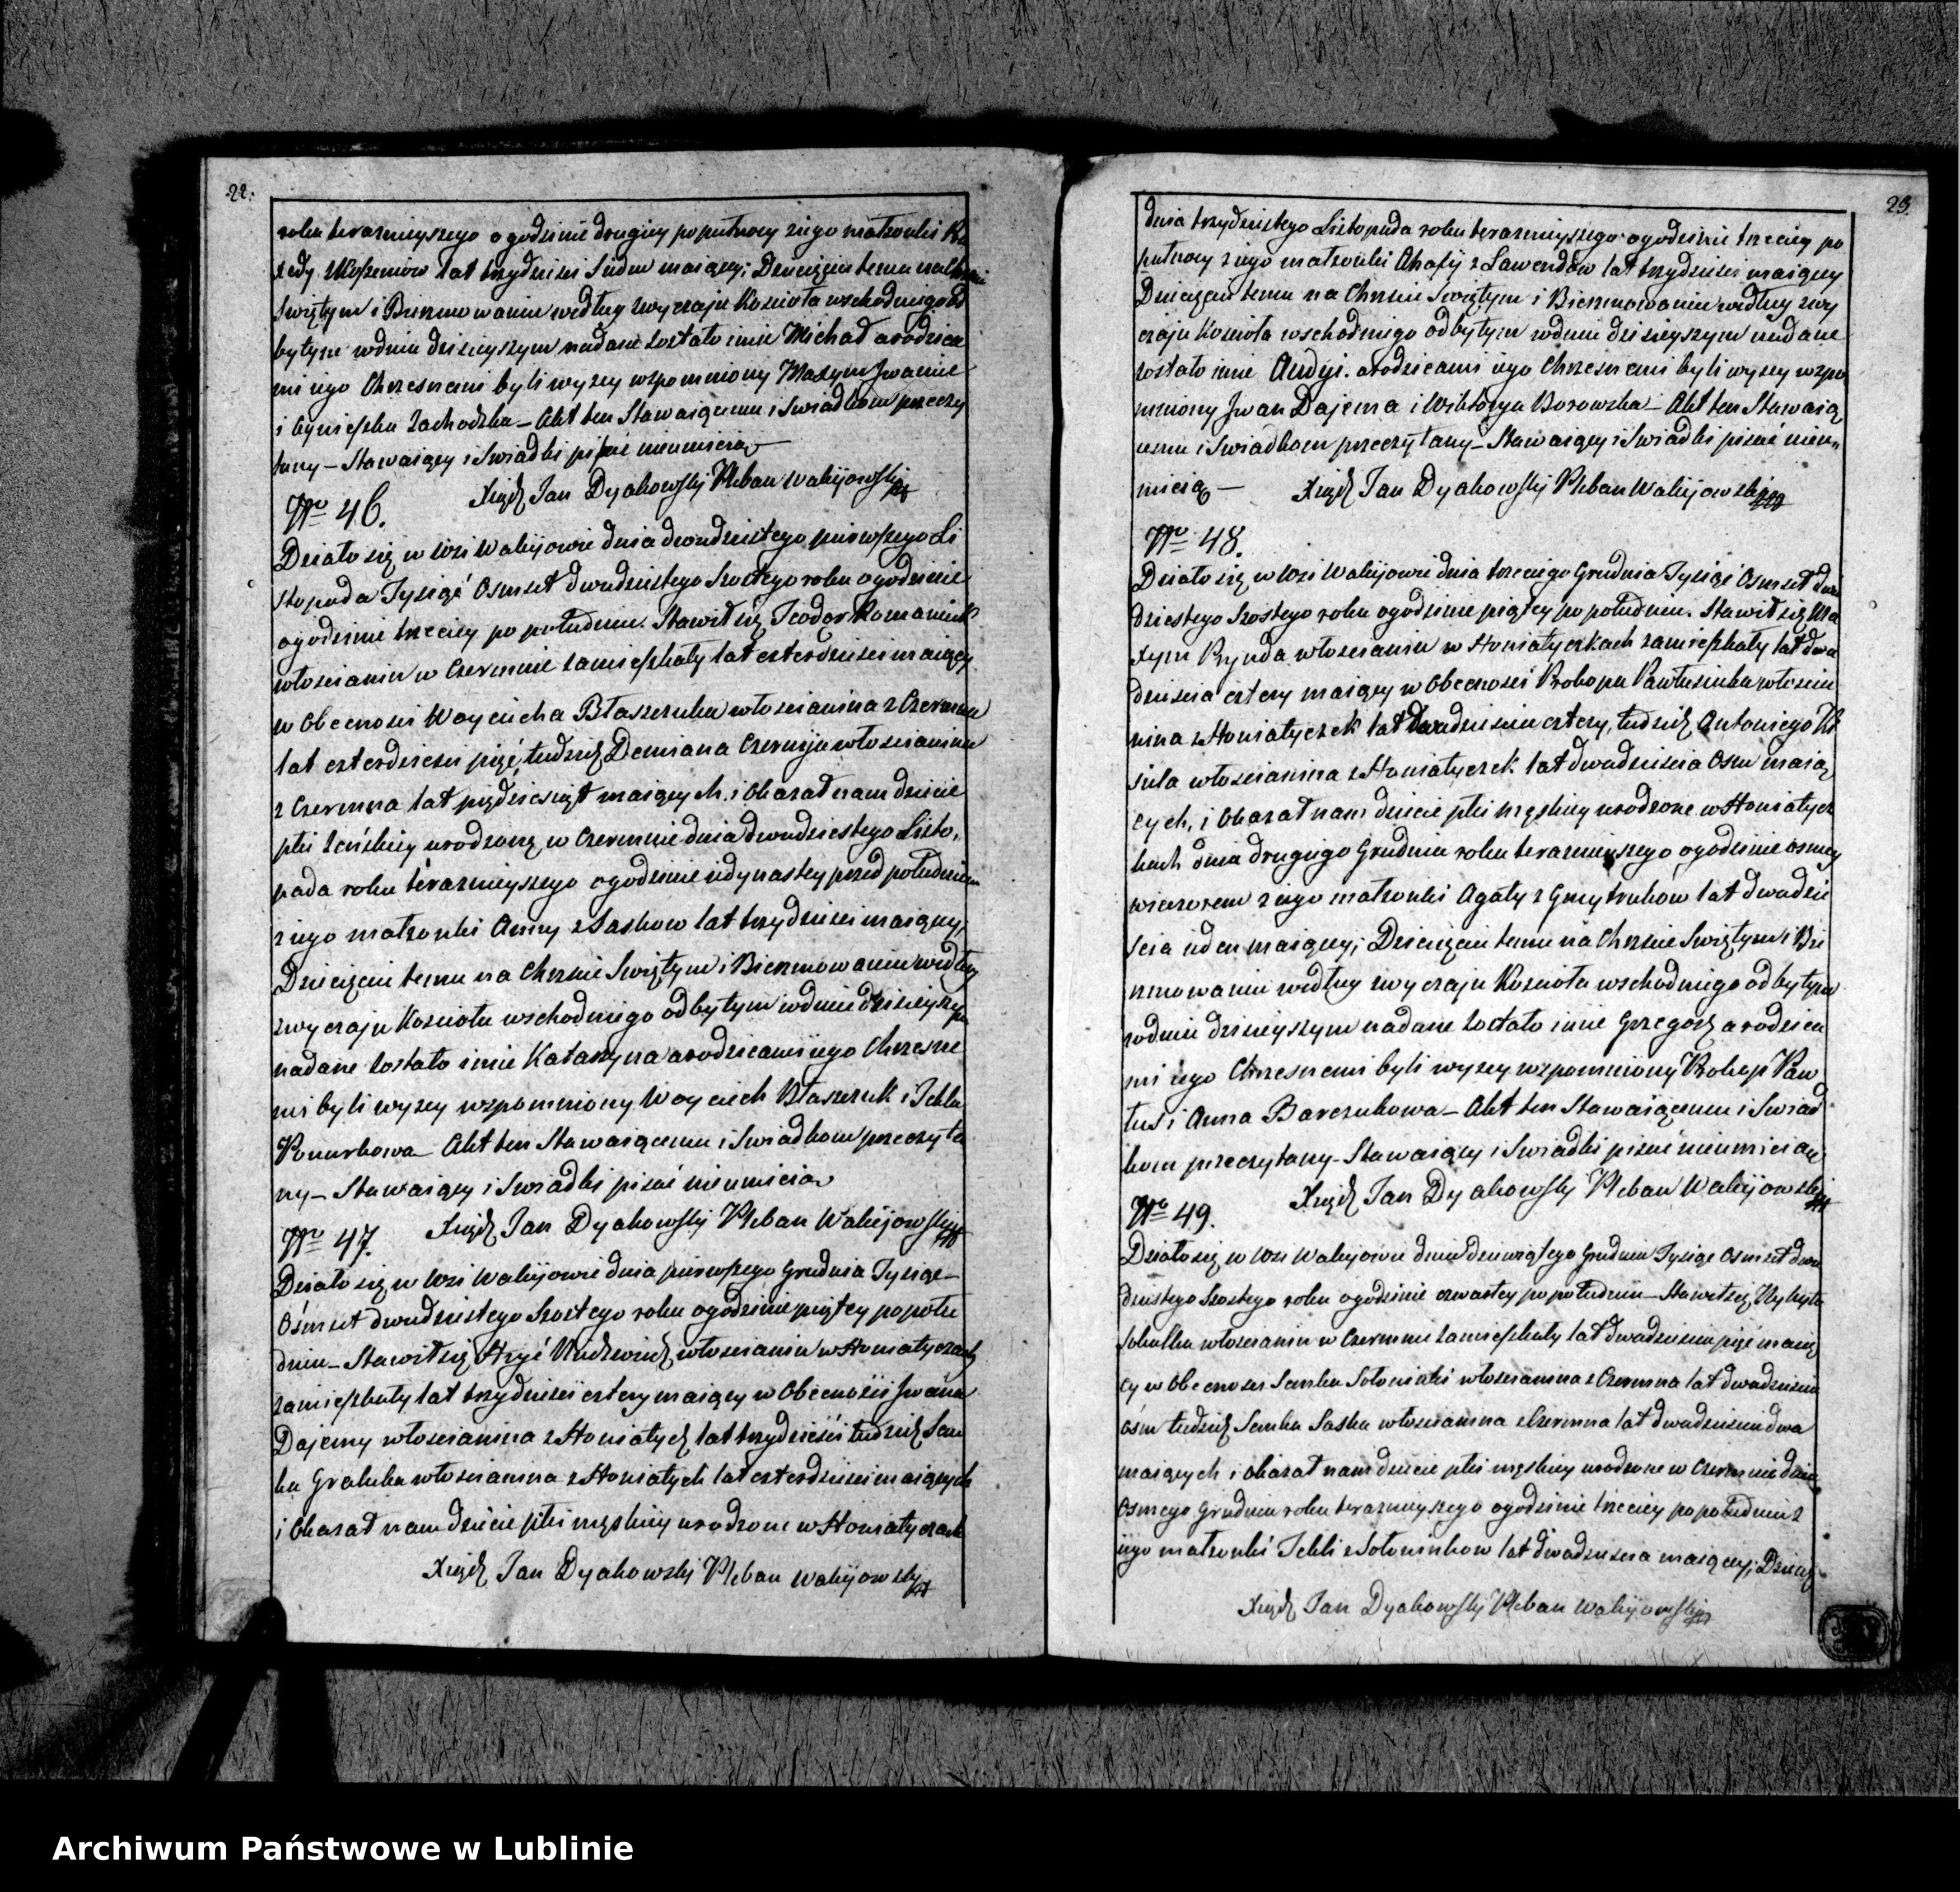 22.
roku teraznieyszego o godzinie drugiey popułnocy ziego małżonki
lat trzydziesci siedm maiącey; Dziecięciu temu na
Swiętym i Bierzmowaniu według zwyczaju Kościoła wschodniego od
bytym wdniu dzisieyszym nadane zostało imie Michał a rodzica
mi iego Chrzesnemi byli wyzey wzpomniony Maxym Iwaniec
i Zachodzka – Akt ten Stawaiącemu i Swiadkom przeczy
tany – Stawaiący i Swiadki pisać nieumieią
Xiądz Jan Dyakowski Pleban Wakijowski
No 46.
Działo się w Wsi Wakijowie dnia dwudziestego pierwszego Li
stopada Tysiąć Osmset dwudziestego Szostego roku ogodzinie
ogodzinie trzeciey po południu. Stawił się Teodor Romaniuk
włoscianin w Czermnie zamieszkały lat czterdziesci maiący
w Obecnosci Woyciecha Błaszczuka włoscianina z Czermna
lat czterdziesci pięć, tudziesz Demiana Czernija włoscianina
z Czermna lat pięćdziesiąt maiących, i Okazał nam dziecie
płci żeńskiey urodzoną w Czermnie dnia dwudziestego Listo,
pada roku teraznieyszego ogodzinie iedynastey przed południem
z iego małżonki Anny z Saskow lat trzydziesci maiącey;
Dziecięciu temu na Chrzcie Swiętym i Bierzmowaniu według
zwyczaju Kościoła wschodniego odbytym wdniu dzisieyszym
nadane zostało imie Katarzyna a rodzicami iego Chrzesne
mi byli wyzey wzpomniony Woyciech Błaszczuk i Tekla
Akt ten Stawaiącemu i Swiadkom przeczyta
ny – Stawaiący i Swiadki pisać nieumieią
No 47. Xiądz Jan Dyakowski Pleban Wakijowski
Działo się w Wsi Wakijowie dnia pierwszego Grudnia Tysiąc–
Ośmset dwudziestego Szostego roku ogodzinie piątey popołu
dniu – Stawił się Hryć włoscianin w Honiatyczach
zamieszkały lat trzydziesci cztery maiący w Obecności Iwana
Dajemy włoscianina z Honiatycz lat trzydzieści tudziesz Sem
ka włoscianina z Honiatycz lat czterdziesci maiących
i Okazał nam dziecie płci męskiey urodzone w Honiatyczach
Xiądz Jan Dyakowski Pleban Wakijowski
23.
dnia trzydziestego Listopada roku teraznieyszego ogodzinie trzeciey po
pułnocy z iego małżonki z lat trzydziesci maiącey
Dziecięciu temu na Chrzcie Swiętym i Bierzmowaniu według zwy
czaju Kościoła wschodniego odbytym wdniu dzisieyszym nadane
zostało imie Andyi. a rodzicami iego Chrzesnemi byli wyzey wzpo
mniony Iwan Dajema i Wiktorya Borowska – Akt ten Stawaią
cemu i Swiadkom przeczytany – Stawaiący i Swiadki pisać nieu„
mieią – Xiądz Jan Dyakowski Pleban Wakijowski
No 48.
Działo się w Wsi Wakijowie dnia trzeciego Grudnia Tysiąć Osmset dwu
dziestego Szostego roku ogodzinie piątey po południu. Stawił się Ma
xym Rynda włoscianin w Honiatyczkach zamieszkały lat dwa
dziescia cztery maiący w Obecnosci Prokopa włoscia
nina z Honiatyczek lat dwadziescia cztery, tudziesz Antoniego
włoscianina z Honiatyczek lat dwadziescia Osm maią
cych, i Okazał nam dziecie płci męskiey urodzone w Honiatycz
kach dnia drugiego Grudnia roku teraznieyszego ogodzinie osmey
wieczorem z iego małżonki Agaty z lat dwadzie
scia ieden maiącey; Dziecięciu temu na Chrzcie Swiętym i Bie
rzmowaniu według zwyczaju Kościoła wschodniego odbytym
wdniu dzisieyszym nadane zostało imie Grzegorz a rodzica
mi iego Chrzesnemi byli wyzey wzpomniony Prokop Paw
luś i Anna Barczukowa – Akt ten Stawaiącemu i Swiad
kom przeczytany – Stawaiący i Swiadki pisać nieumieią
No 49. Xiądz Jan Dyakowski Pleban Wakijowski
Działo się w Wsi Wakijowie dnia dziewiątego Grudnia Tysiąc Osmset dwu
dziestego Szostego roku ogodzinie czwartey po południu – Stawił się Mykyta
włoscianin w Czermnie zamieszkały lat dwadziescia pięć maią
cy w Obecnosci Semka włoscianina z Czermna lat dwadziescia
ośm tudziesz Semka Saska włoscianina z Czermna lat dwadziescia dwa
maiących i Okazał nam dziecie płci męskiey urodzone w Czermnie dnia
Osmego Grudnia roku teraznieyszego ogodzinie trzeciey popołudniu z
iego małżonki Tekli z lat dwadziescia maiącey; Dziecię
Xiądz Jan Dyakowski Pleban Wakijowski
Archiwum Państwowe w Lublinie